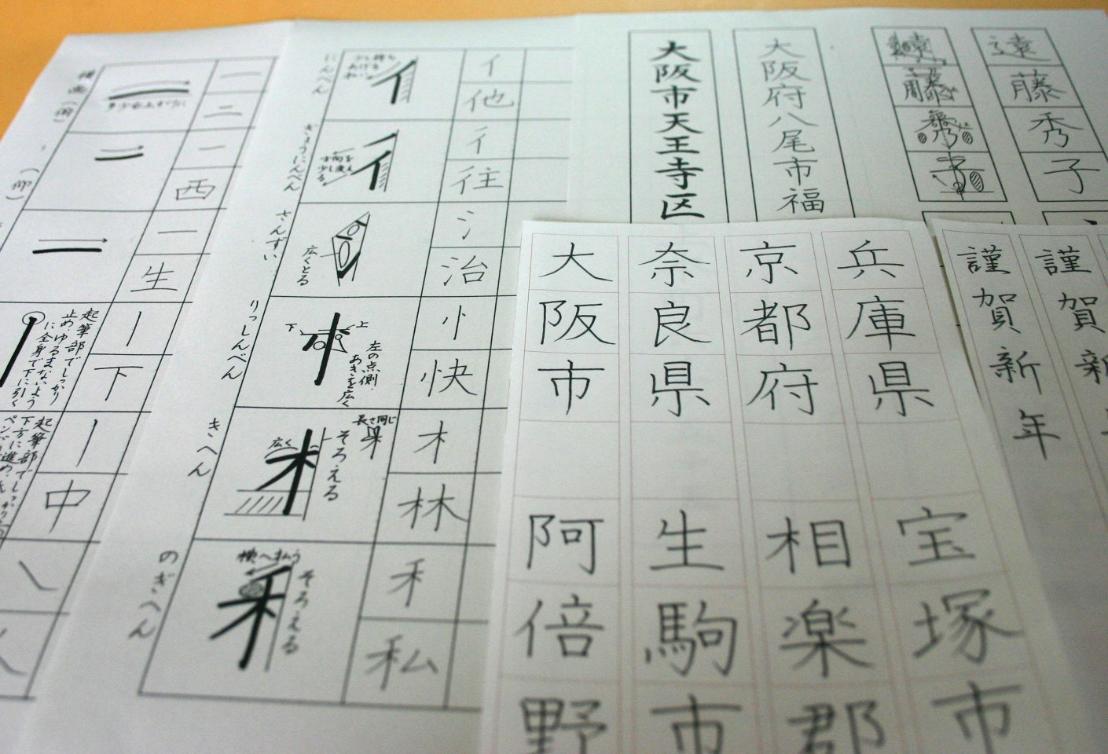 大阪市阿倍野
奈良県生駒市
京都府相楽郡
兵庫県宝塚市
謹賀新年
謹賀新
大阪市天王寺区
大阪府八尾市福
遠藤秀子
にんべん
イ
他
ぎょうにんべん
彳
往
さんずい
広くとる
氵
治
りっしんべん
下
上
左の点側
あきを広く
忄
快
きへん
広く
そろえる
長さ同じ
木
林
のぎへん
横へ払う
そろえる
禾
私
一
二
一
西
一
生
起筆部でしっかり
止め、ゆるまないよう
に全身で下に引く
丨
下
起筆部でしっかり
丨
中